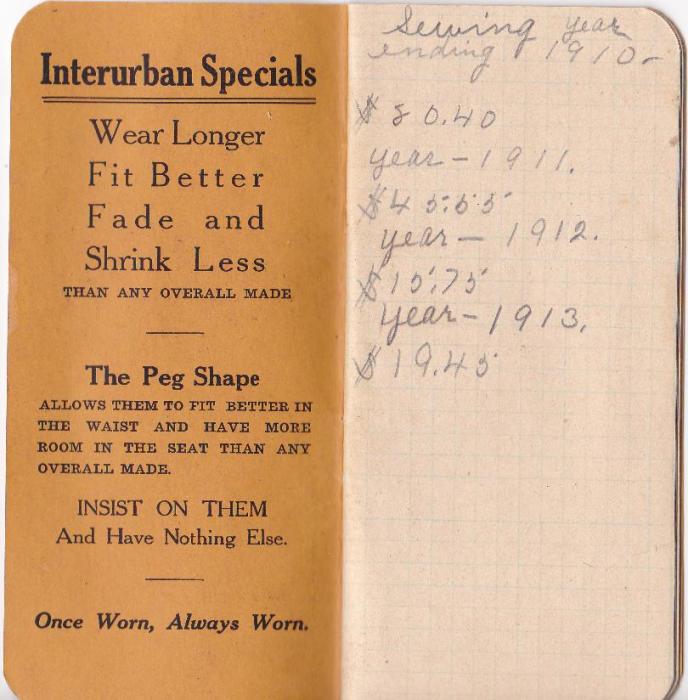 Interurban Specials
Wear Longer
Fit Better
Fade and
Shrink Less
THAN ANY OVERALL MADE
The Peg Shape
ALLOWS THEM TO FIT BETTER IN
THE WAIST AND HAVE MORE
ROOM IN THE SEAT THAN ANY
OVERALL MADE.
INSIST ON THEM
And Have Nothing Else.
Once Worn, Always Worn.
Sewing year
ending 1910-
$80.40
year - 1911.
$45.55
year - 1912.
$15.75
year - 1913.
$19.45